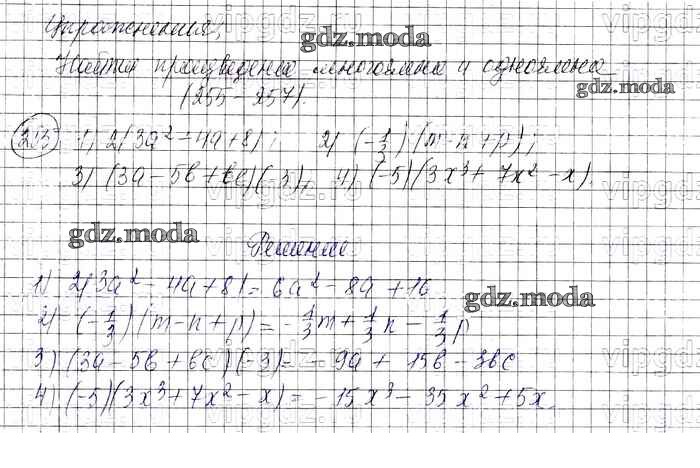 Упражнения,
gdz.moda
Найти произведение многочлена и одночлена
gdz.moda
(255-257).
255 1) 2(3a² - 4a + 8); 2) (-1/3)(m - n + p);
3) (3a - 5b + bc)(-3); 4) (-5)(3x³ + 7x² - x).
gdz.moda
Решение.
1) 2(3a² - 4a + 8) = 6a² - 8a + 16
gdz.moda
2) (-1/3)(m - n + p) = -1/3m + 1/3n - 1/3p
3) (3a - 5b + bc)(-3) = -9a + 15b - 3bc
4) (-5)(3x³ + 7x² - x) = -15x³ - 35x² + 5x.